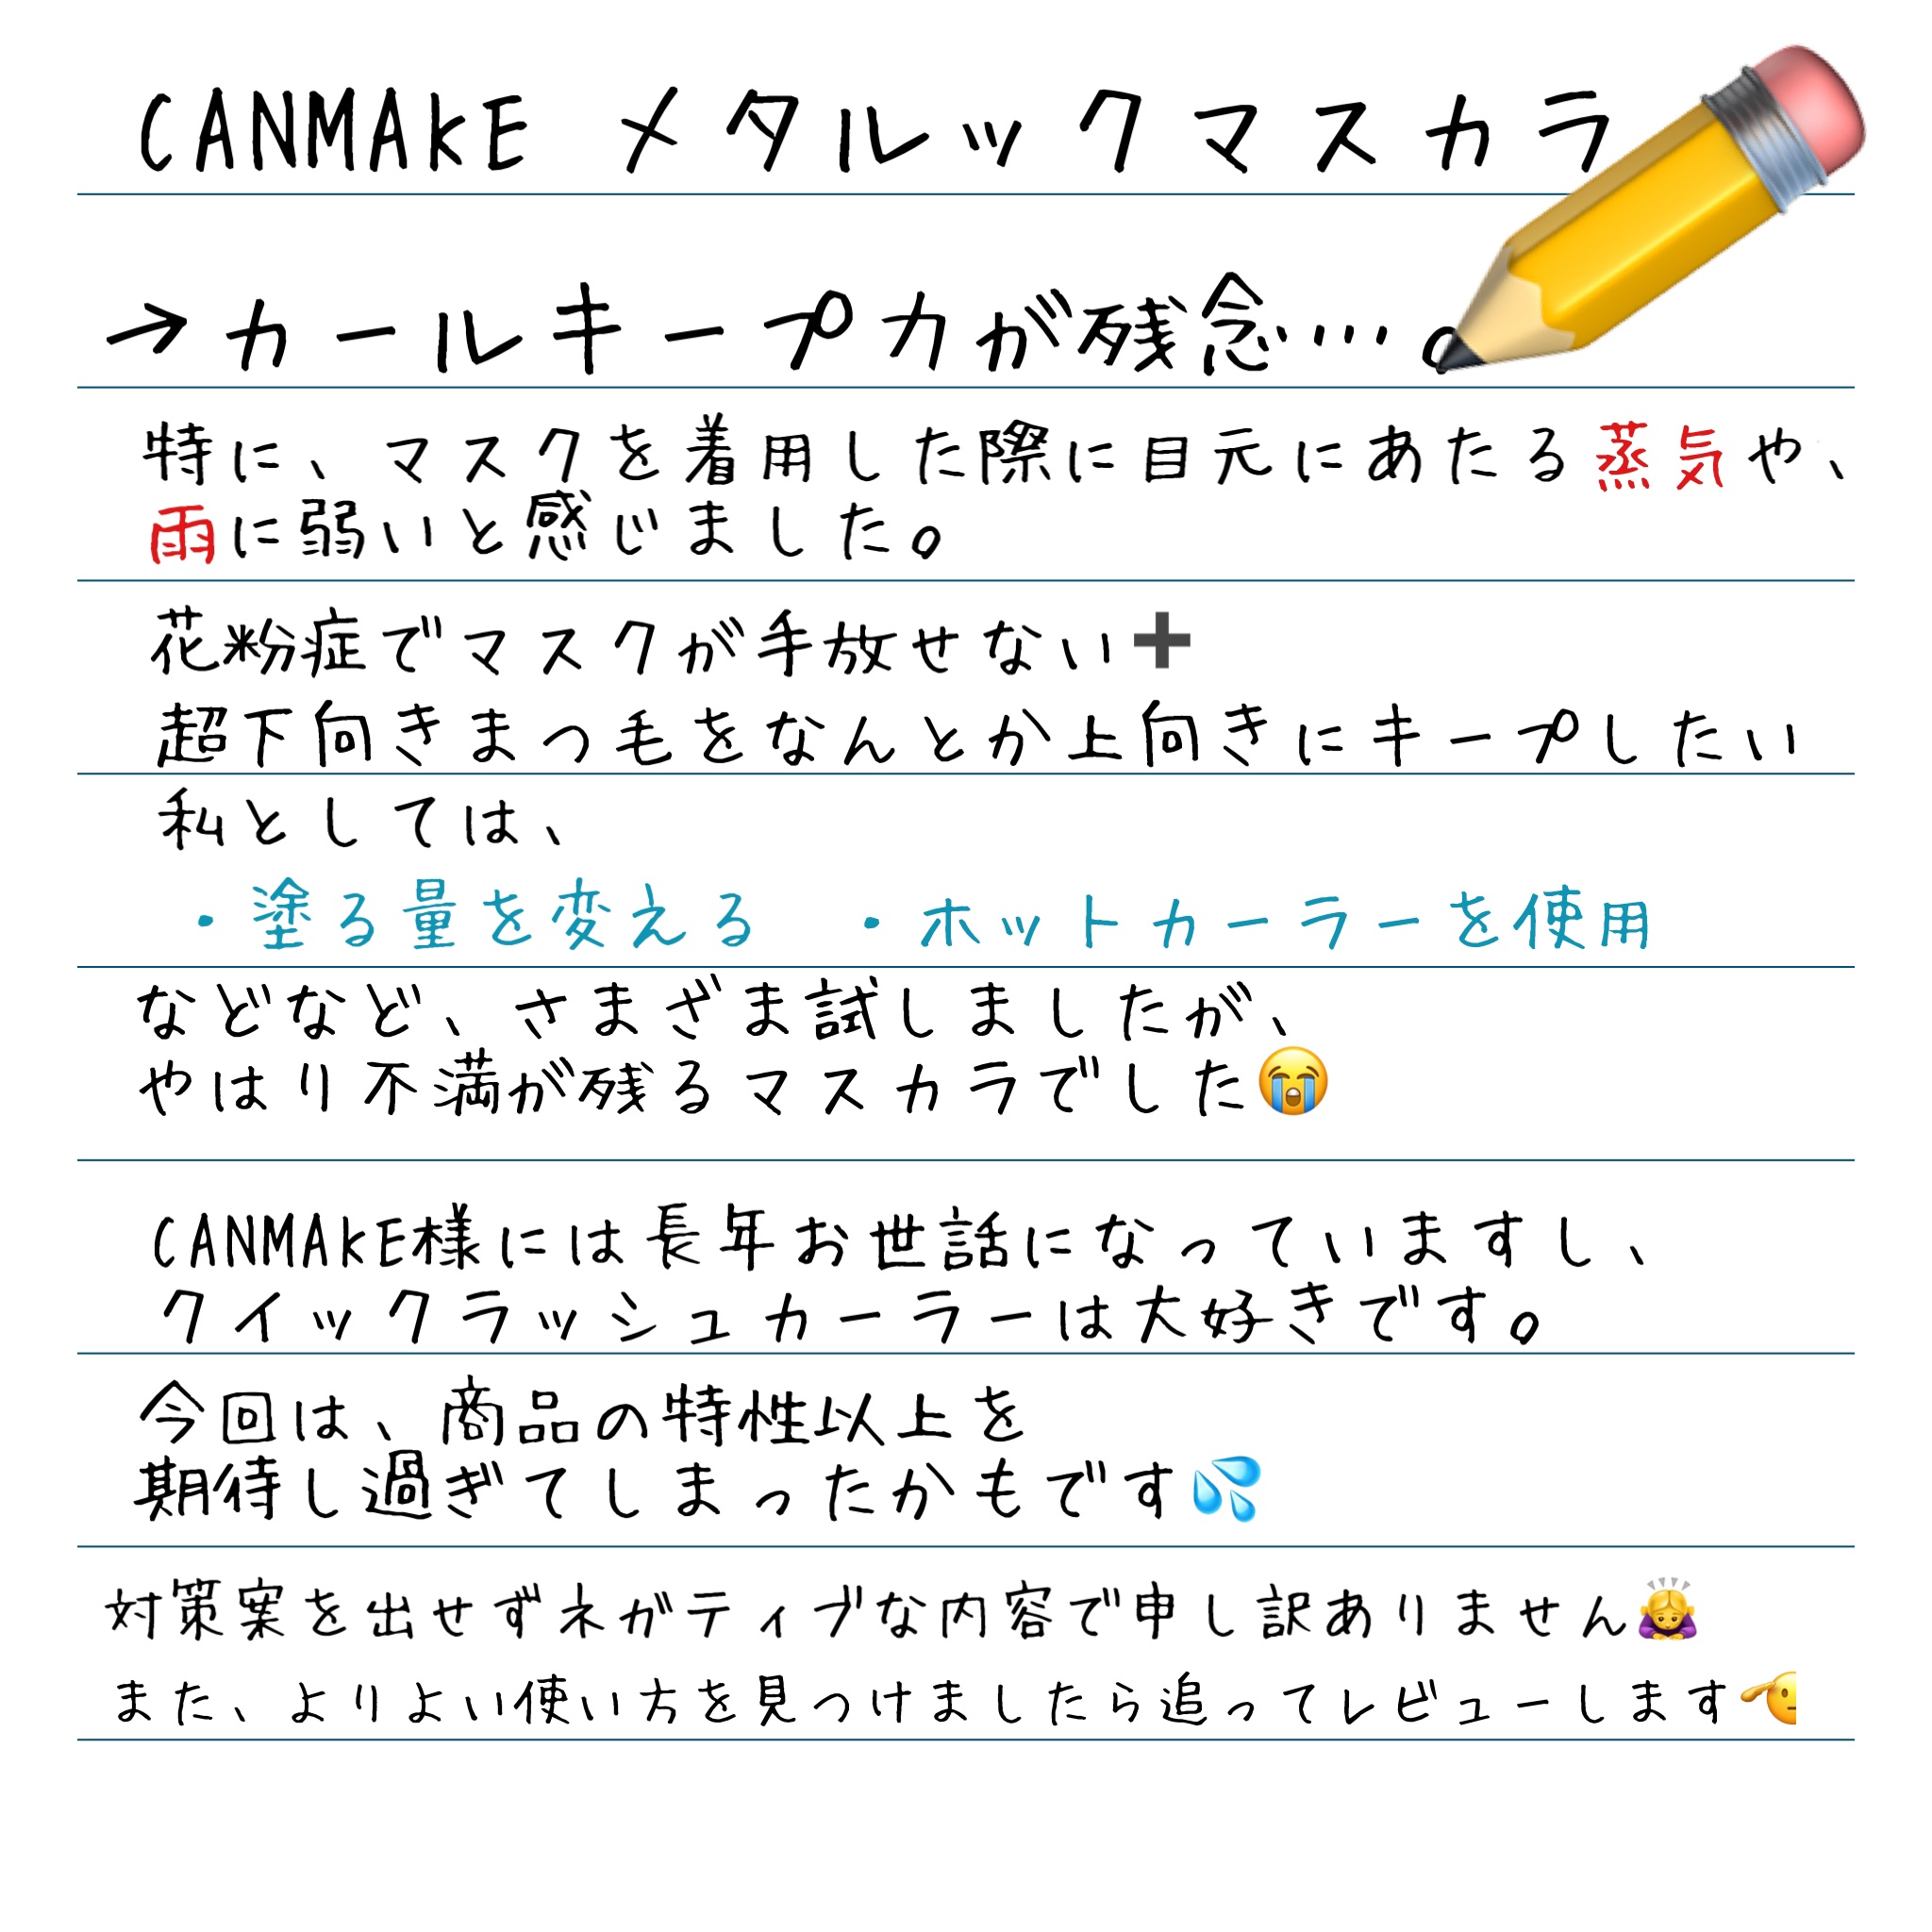 CANMAKE メタルックマスカラ
→カールキープ力が残念…。
特に、マスクを着用した際に目元にあたる蒸気や、
雨に弱いと感じました。
花粉症でマスクが手放せない➕
超下向きまつ毛をなんとか上向きにキープしたい
私としては、
・塗る量を変える ・ホットカーラーを使用
などなど、さまざま試しましたが、
やはり不満が残るマスカラでした😭
CANMAKE様には長年お世話になっていますし、
クイックラッシュカーラーは大好きです。
今回は、商品の特性以上を
期待し過ぎてしまったかもです💦
対策案を出せずネガティブな内容で申し訳ありません🙇‍♀️
また、よりよい使い方を見つけましたら追ってレビューします🫡